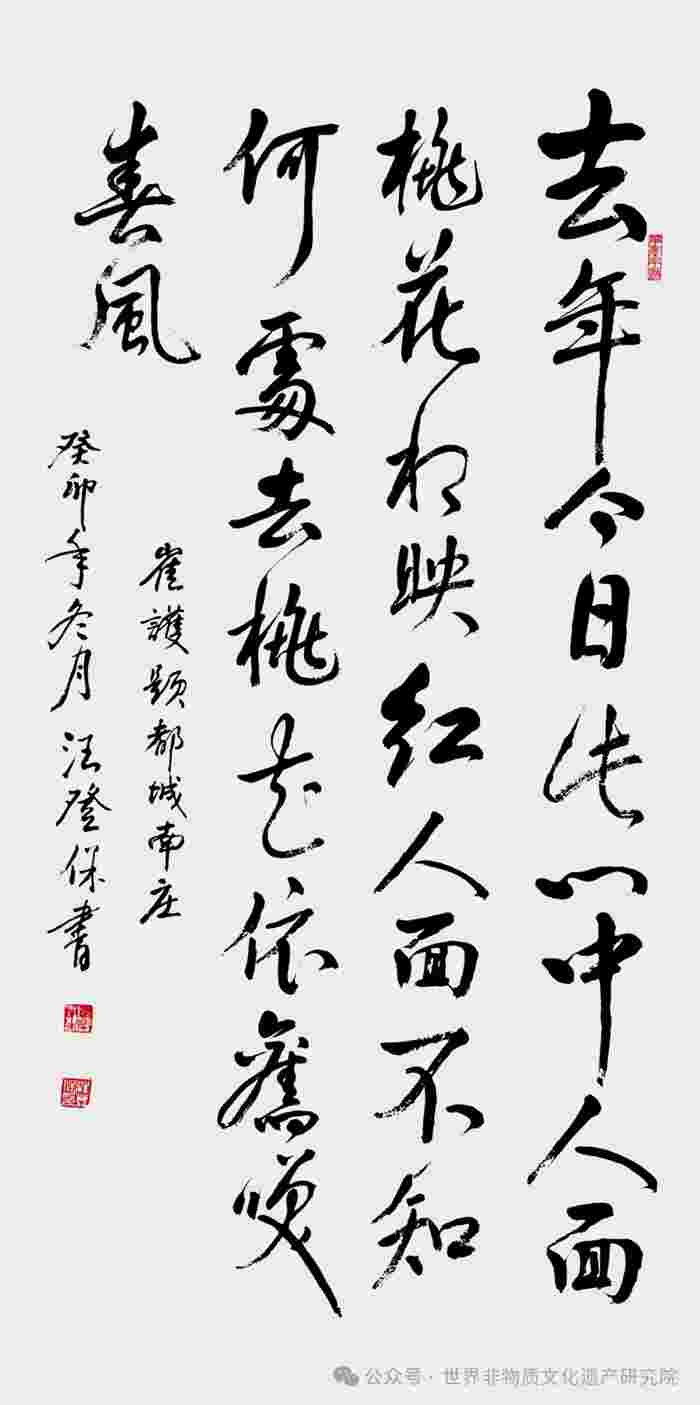 去年今日此門中人面
桃花相映红人面不知
何處去桃花依舊咲
春風
崔護题都城南庄
癸卯年冬月汪登保書
公众号·世界非物质文化遗产研究院